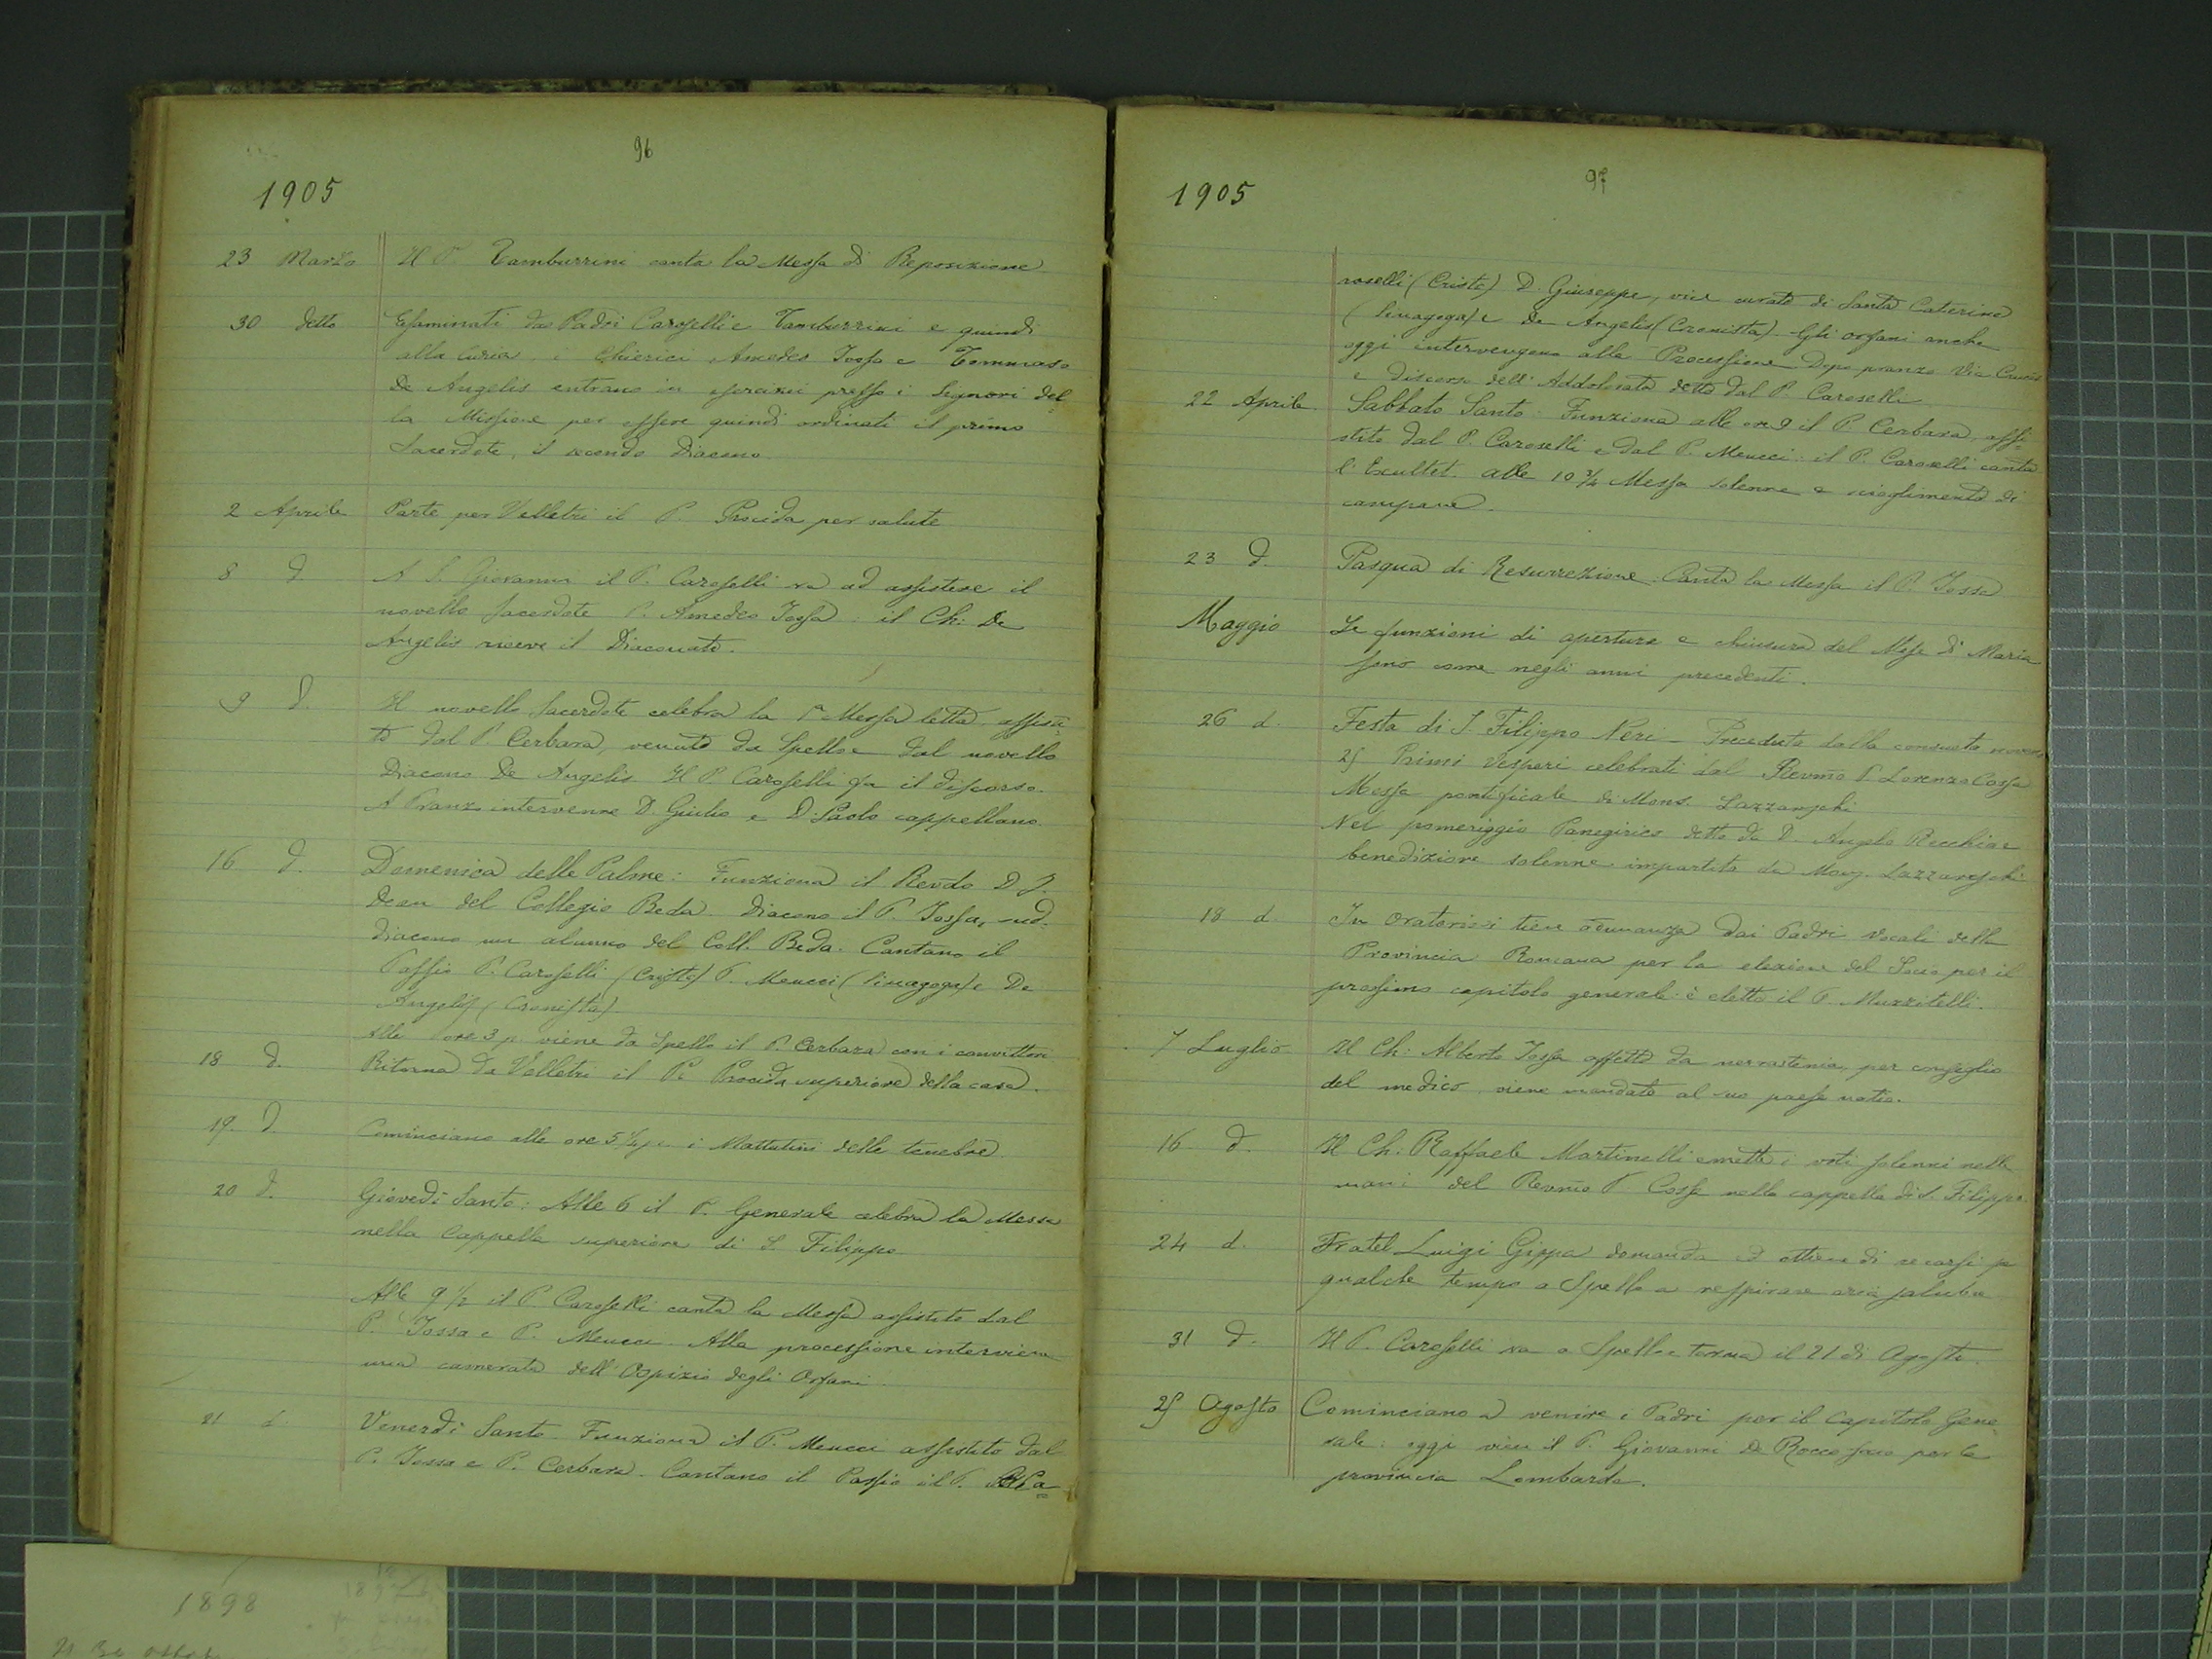 96
1905
23 Marzo Il P. Tamburrini canta la Messa di Reposizione
30 detto Esaminati dai Padri Caroselli e Tamburrini e quindi
alla Curia i Chierici Amedeo Iossa e Tommaso
De Angelis entrano in esercizi presso i Signori del
la Missione per essere quindi ordinati il primo
Sacerdote, il secondo Diacono.
2 Aprile Parte per Velletri il P. Procida per salute
8 d. A S. Giovanni il P. Caroselli va ad assistere il
novello sacerdote P. Amedeo Iossa: il Ch: De
Angelis riceve il Diaconato.
9 d. Il novello Sacerdote celebra la 1ª Messa letta, assisti
to dal P. Cerbara, venuto da Spello e dal novello
Diacono De Angelis. Il P. Caroselli fa il discorso.
A Pranzo intervenne D. Giulio e D. Paolo cappellano.
16 d. Domenica delle Palme: Funziona il Revdo D. J.
Dean del Collegio Beda. Diacono il P. Iossa, sud
diacono un alunno del Coll. Beda. Cantano il
Passio P. Caroselli (Cristo) P. Meucci (Sinagoga) e De
Angelis (Cronista).
Alle ore 3 p. viene da Spello il P. Cerbara con i convittori
18 d. Ritorna da Velletri il P. Procida superiore della casa.
19. d. Cominciano alle ore 5 1/4 p. i Mattutini delle tenebre.
20 d. Giovedì Santo: Alle 6 il P. Generale celebra la Messa
nella Cappella superiore di S. Filippo.
Alle 9 1/2 il P. Caroselli canta la Messa assistito dal
P. Iossa e P. Meucci. Alla processione interviene
una camerata dell'Ospizio degli Orfani.
21 d. Venerdì Santo. Funziona il P. Meucci assistito dal
P. Iossa e P. Cerbara. Cantano il Passio il P. Ca=
97
1905
roselli (Cristo) D. Giuseppe, vice curato di Santa Caterina
(Sinagoga) e De Angelis (Cronista). Gli orfani anche
oggi intervengono alla Processione. Dopo pranzo Via Crucis
e discorso dell'Addolorata detto dal P. Caroselli
22 Aprile Sabbato Santo: Funziona alle ore 9 il P. Cerbara, assi=
stito dal P. Caroselli e dal P. Meucci: il P. Caroselli canta
l'Exultet. alle 10 3/4 Messa solenne e scioglimento di
campane.
23 d. Pasqua di Resurrezione. Canta la Messa il P. Iossa
Maggio Le funzioni di apertura e chiusura del Mese di Maria
sono come negli anni precedenti.
26 d. Festa di S. Filippo Neri - Preceduta dalla consueta novena
25 Primi Vesperi celebrati dal Revmo P. Lorenzo Cossa
Messa pontificale di Mons. Lazzareschi
Nel pomeriggio Panegirico detto da D. Angelo Recchia e
benedizione solenne impartita da Mons. Lazzareschi
18 d. In Oratorio si tiene adunanza dai Padri Vocali della
Provincia Romana per la elezione del Socio per il
prossimo capitolo generale: è eletto il P. Muzzitelli.
7 Luglio Il Ch: Alberto Iossa affetto da nevrastenia, per consiglio
del medico, viene mandato al suo paese natio.
16 d. Il Ch: Raffaele Martinelli emette i voti solenni nelle
mani del Revmo P. Cossa nella cappella di S. Filippo.
24 d. Fratel Luigi Gippa domanda ed ottiene di recarsi p
qualche tempo a Spello a respirare aria salubre
31 d. Il P. Caroselli va a Spello e torna il 21 di Agosto.
25 Agosto Cominciano a venire i Padri per il Capitolo Gene
rale: oggi viene il P. Giovanni De Rocco socio per la
provincia Lombarda.
1898